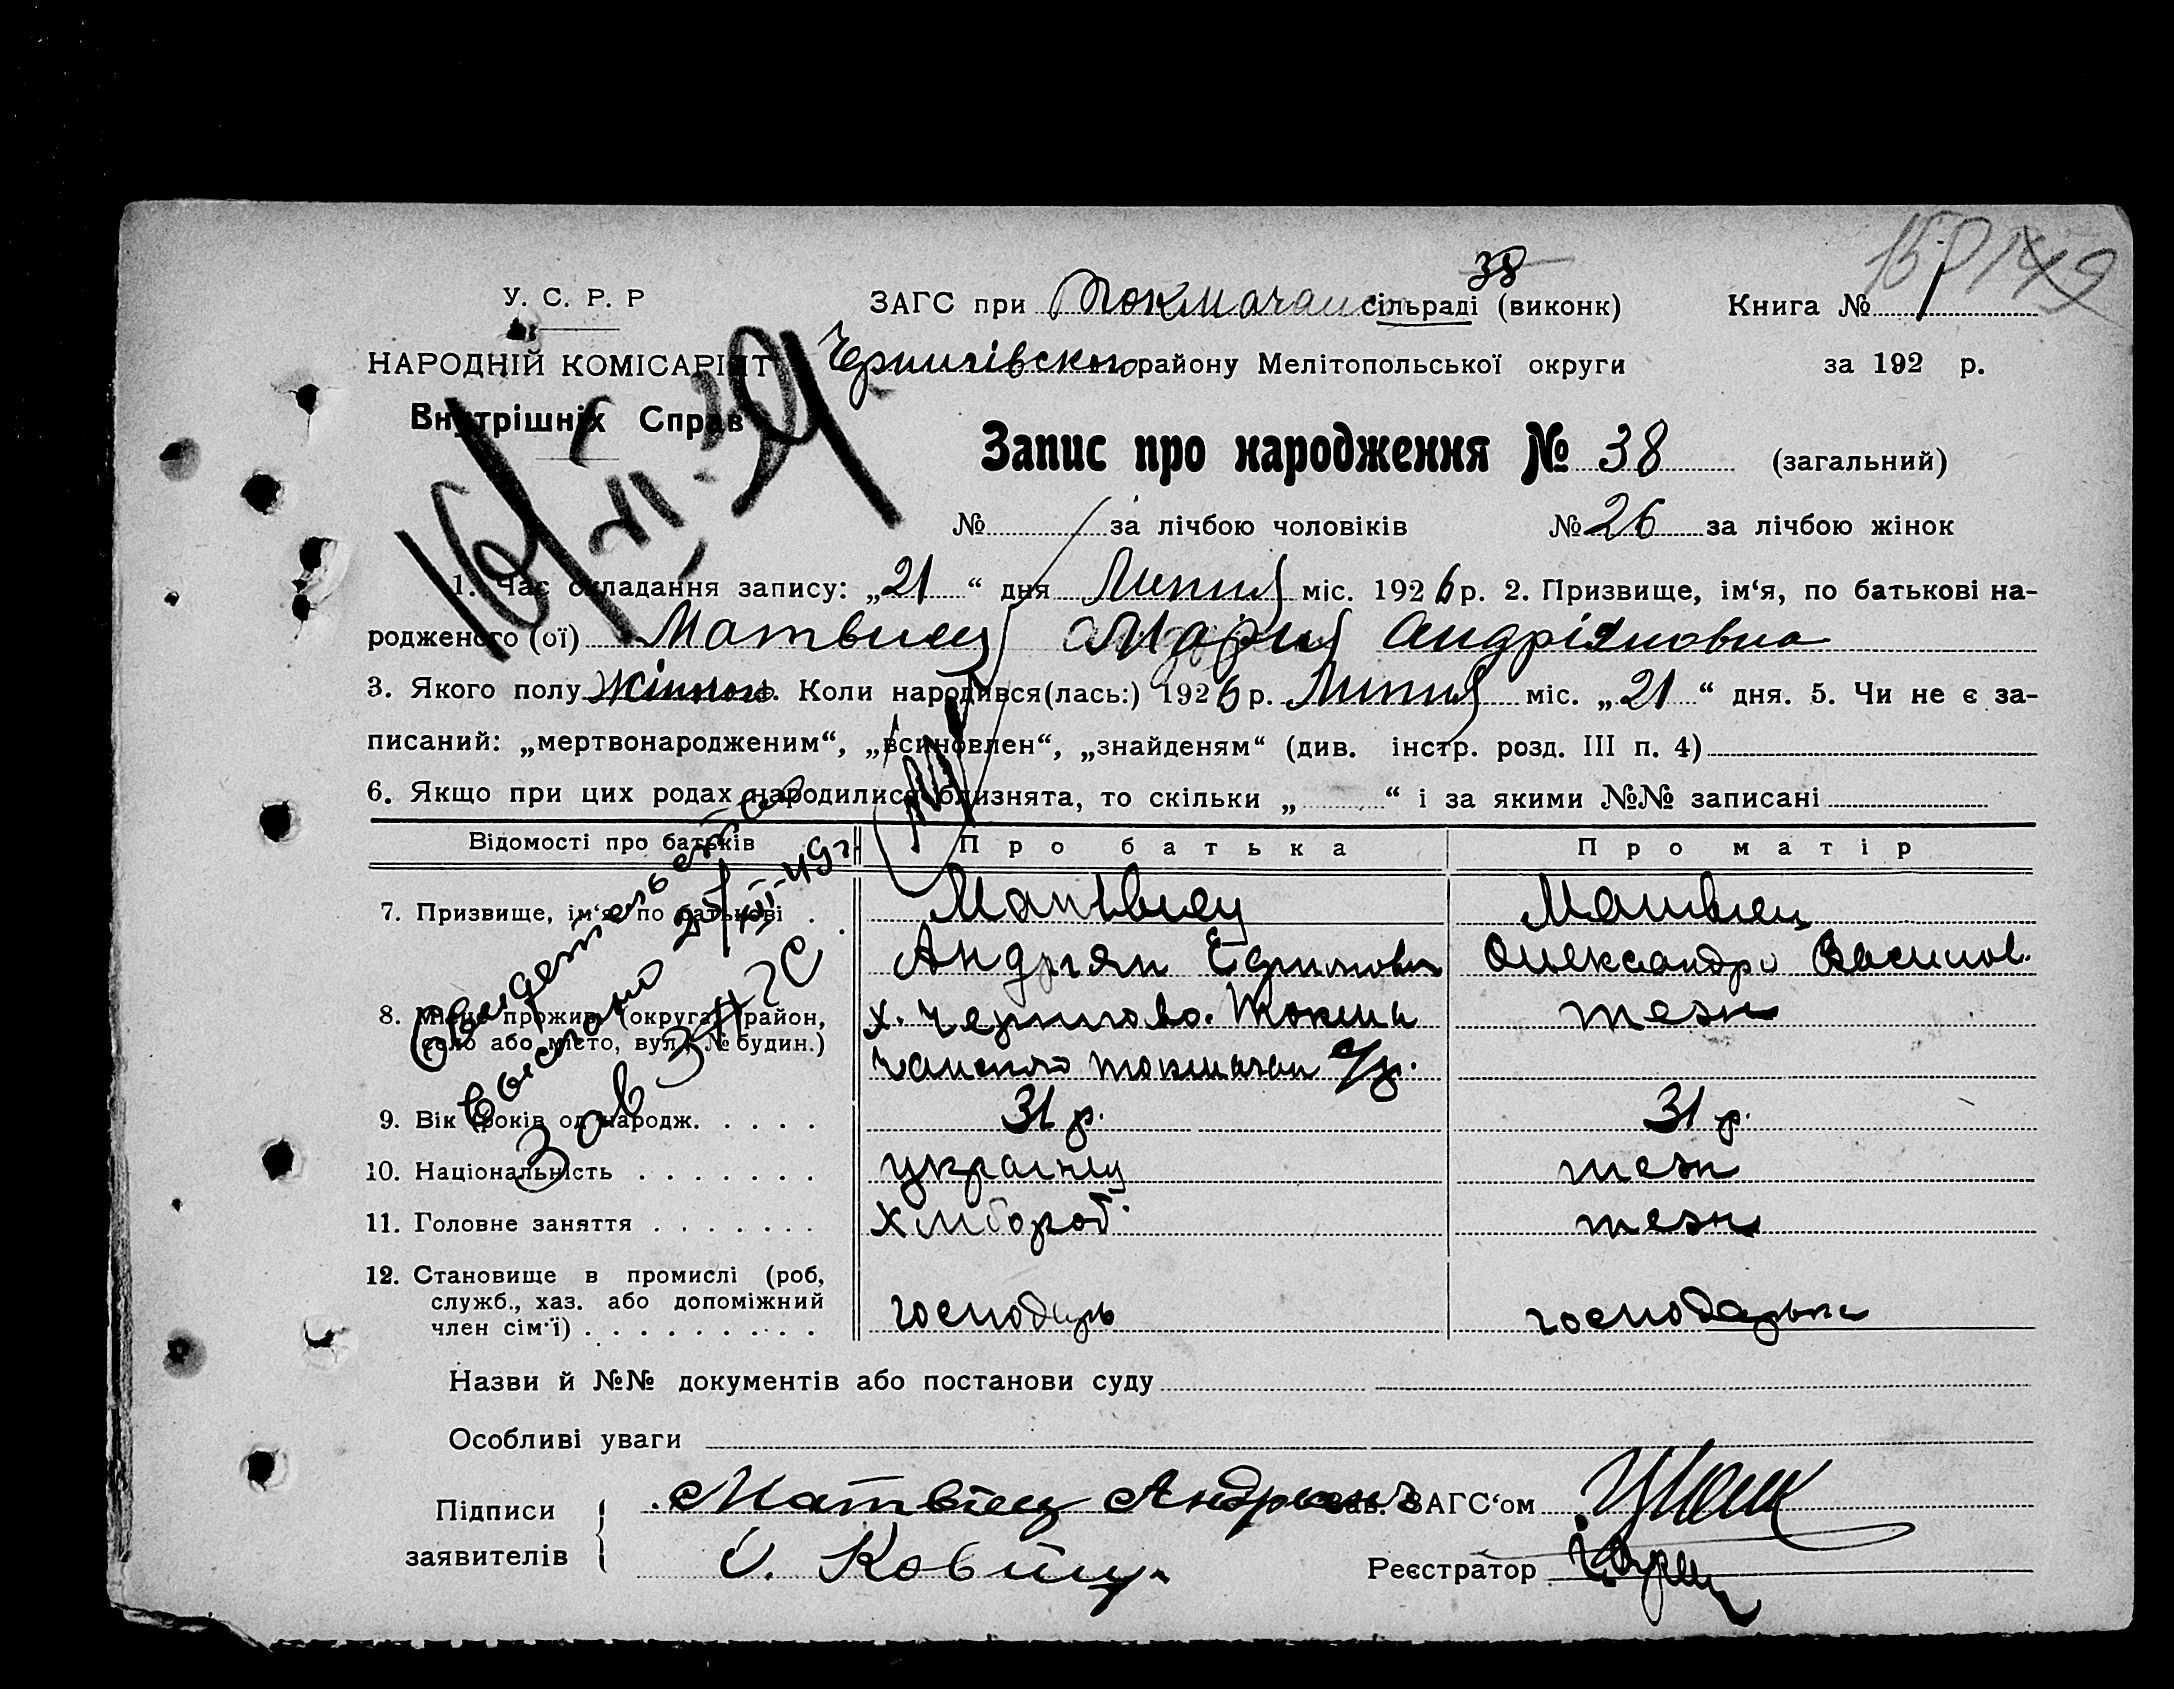 15 149
38
У. С. Р. Р
ЗАГС при Токмачан сільраді (виконк)
Книга № 1
НАРОДНІЙ КОМІСАРІЯТ
Чернигівского району Мелітопольської округи
за 192 р.
Внутрішніх Справ
Запис про народження № 38 (загальний)
№ за лічбою чоловіків № 26 за лічбою жінок
1. Час складання запису: „21“ дня Липня міс. 1926 р. 2. Призвище, ім‘я, по батькові на-
родженого (ої) Матвиец Мария Андріяновна
3. Якого полу жіноч. Коли народився(лась:) 1926 р. Липня міс. „21“ дня. 5. Чи не є за-
писаний: „мертвонародженим“, „всиновлен“, „знайденям“ (див. інстр. розд. III п. 4)
6. Якщо при цих родах народилися близнята, то скільки „ “ і за якими №№ записані
Відомості про батьків Про батька Про матір
7. Призвище, ім‘я, по батькові Матвиец Матвиец
Андриян Ефимович Олександра Василов.
8. Місце прожив. (округа, район, х. Чернигово. Токма теж
село або місто, вул., № будин.) чанского Токмачан с/р.
9. Вік (років од народж. 31 р. 31 р.
10. Національність украінец теж
11. Головне заняття хлібороб. теж
12. Становище в промислі (роб,
служб., хаз. або допоміжний
член сім‘ї) господарь господарька
Назви й №№ документів або постанови суду
Особливі уваги
Підписи
заявителів
Матвіец Андриян
Зав. ЗАГС‘ом
Реєстратор
Свидетельство
выслано 25/XII-49 г.
Зав ЗАГС